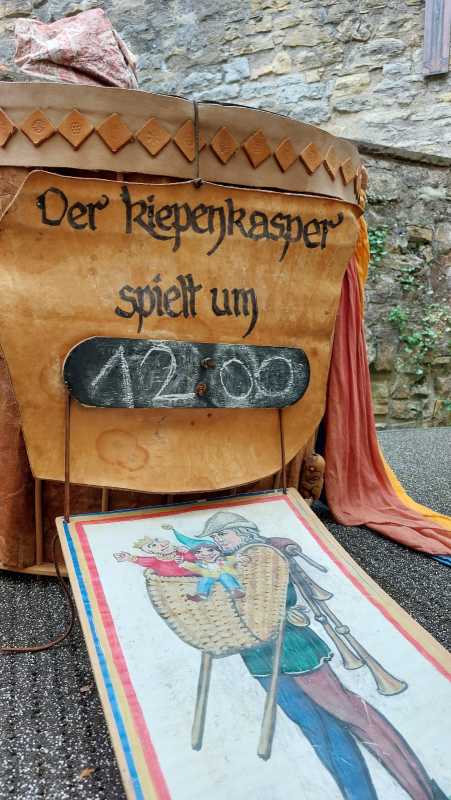 Der Kiepenkasper
spielt um
12 00